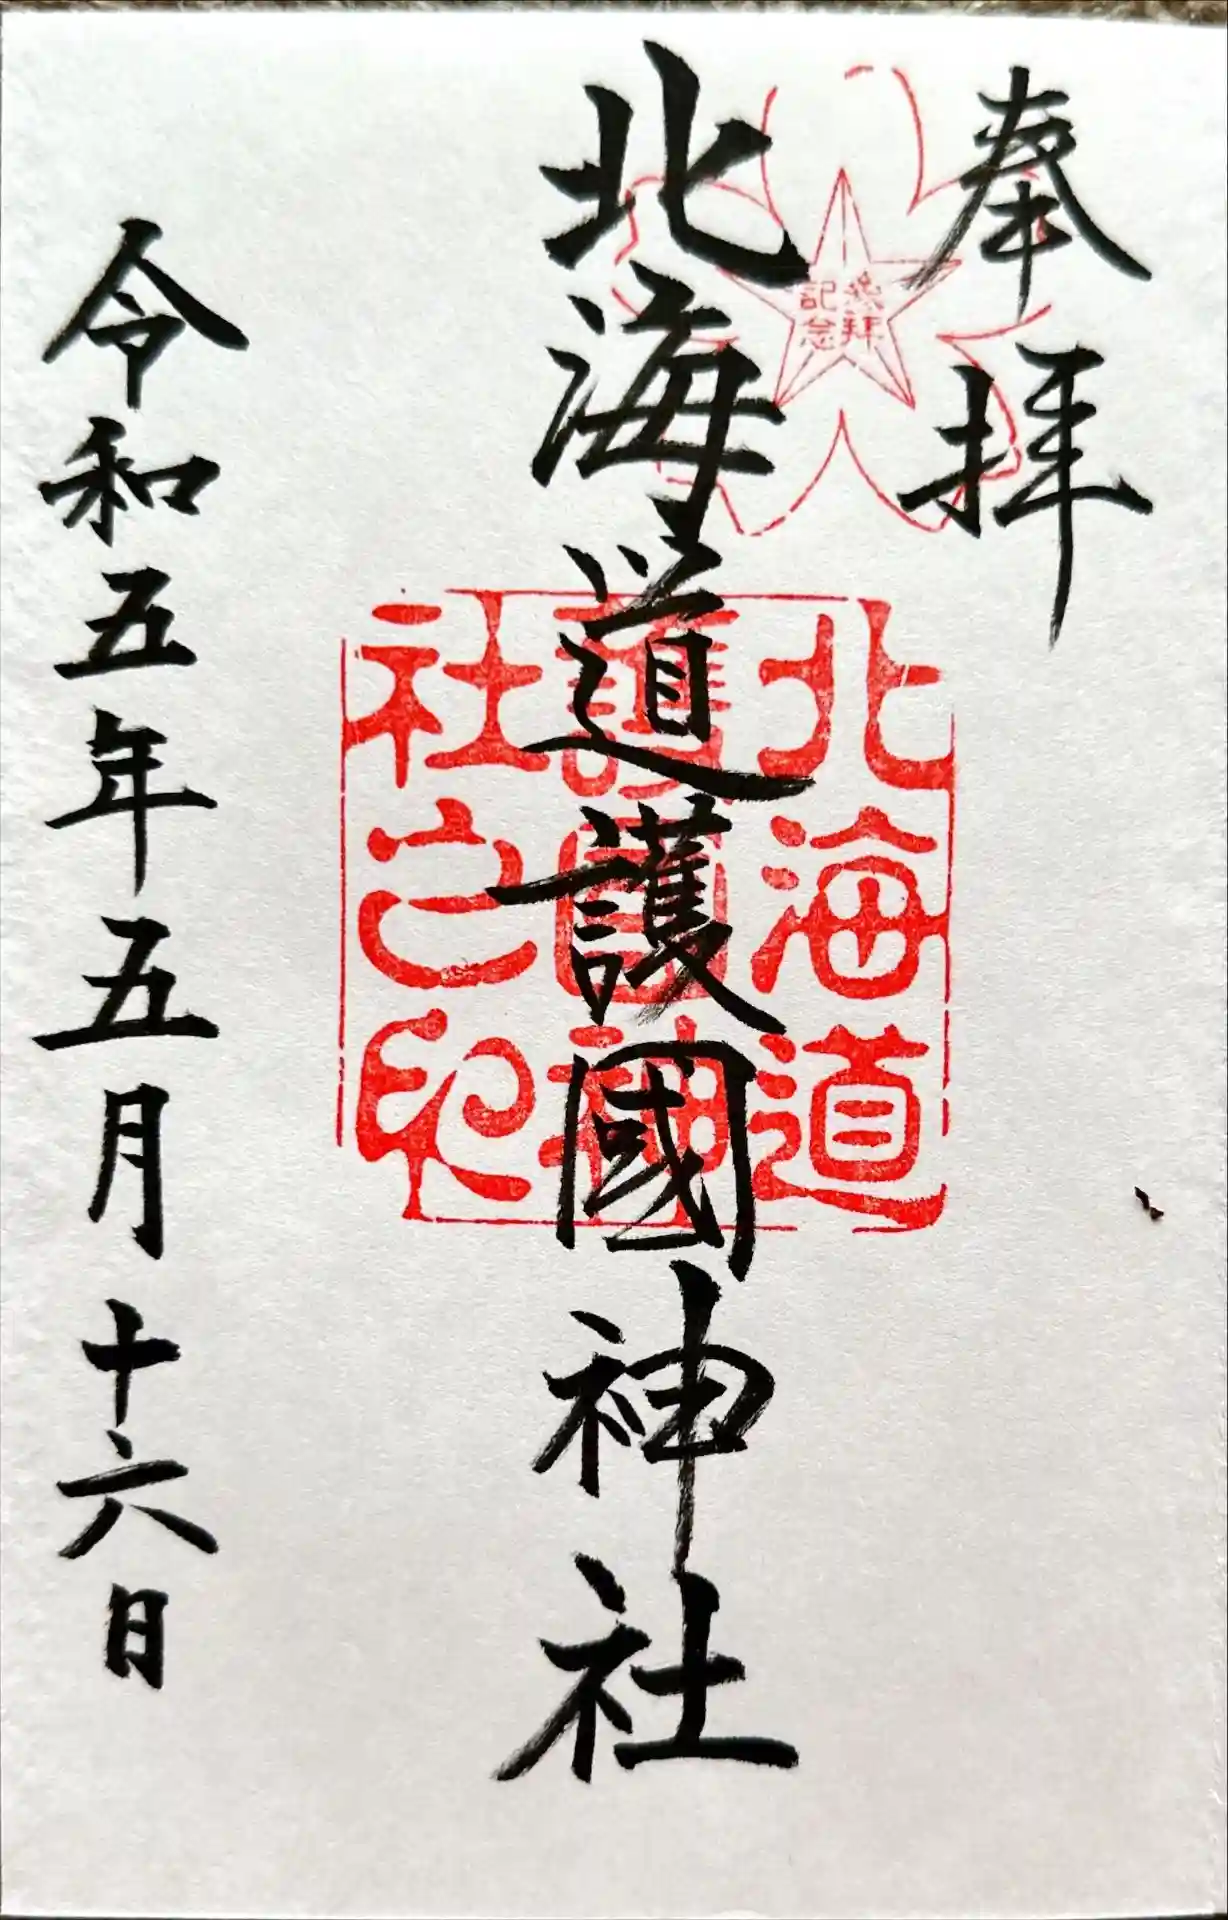 奉拝
参拝
記念
北海道護國神社
北海道
護國神
社之印
令和五年五月十六日